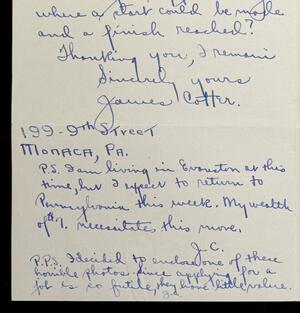 where a start could be made
and a finish reached?
Thanking you, I remain
Sincerely yours
James Cotter.
199-9th Street
Monaca, Pa.
P.S. I am living in Evanston at this
time, but I expect to return to
Pennsylvania this week. My wealth
of $7. necessitates this move.
J.C.
P.P.S. I decided to enclose one of these
horrible photos. Since applying for a
job is so futile, they have little value.